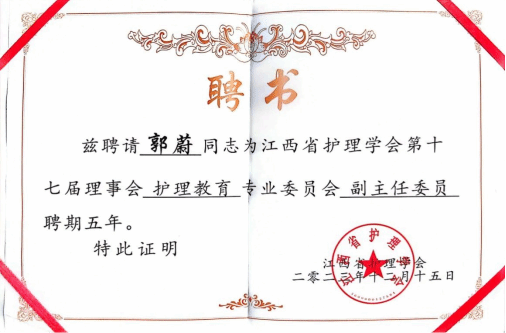 聘书
兹聘请 郭蔚 同志为江西省护理学会第十
七届理事会 护理教育 专业委员会 副主任委员
聘期五年。
特此证明
江西省护理学会
二零二三年十二月十五日
江西省护理学会